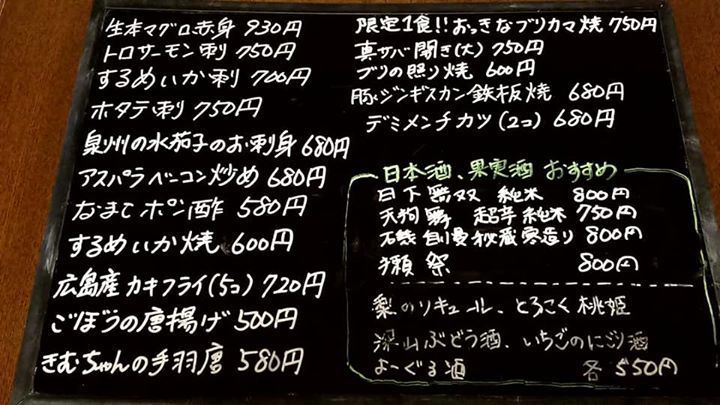 生本マグロ赤身 930円
トロサーモン刺 750円
するめいか刺 700円
ホタテ刺 750円
泉州の水茄子のお刺身 680円
アスパラベーコン炒め 680円
なまこポン酢 580円
するめいか焼 600円
広島産カキフライ(5コ) 720円
ごぼうの唐揚げ 500円
きむちゃんの手羽唐 580円
限定1食!!おっきなブリカマ焼 750円
真サバ開き(大) 750円
ブリの照り焼 600円
豚ジンギスカン鉄板焼 680円
デミメンチカツ(2コ) 680円
日本酒、果実酒 おすすめ
日下無双 純米 800円
天狗舞 超辛純米 750円
石鎚 自慢秘蔵寒造り 800円
獺祭 800円
梨のリキュール、とろこく桃姫
深山ぶどう酒、いちごのにごり酒
よーぐる酒 各550円